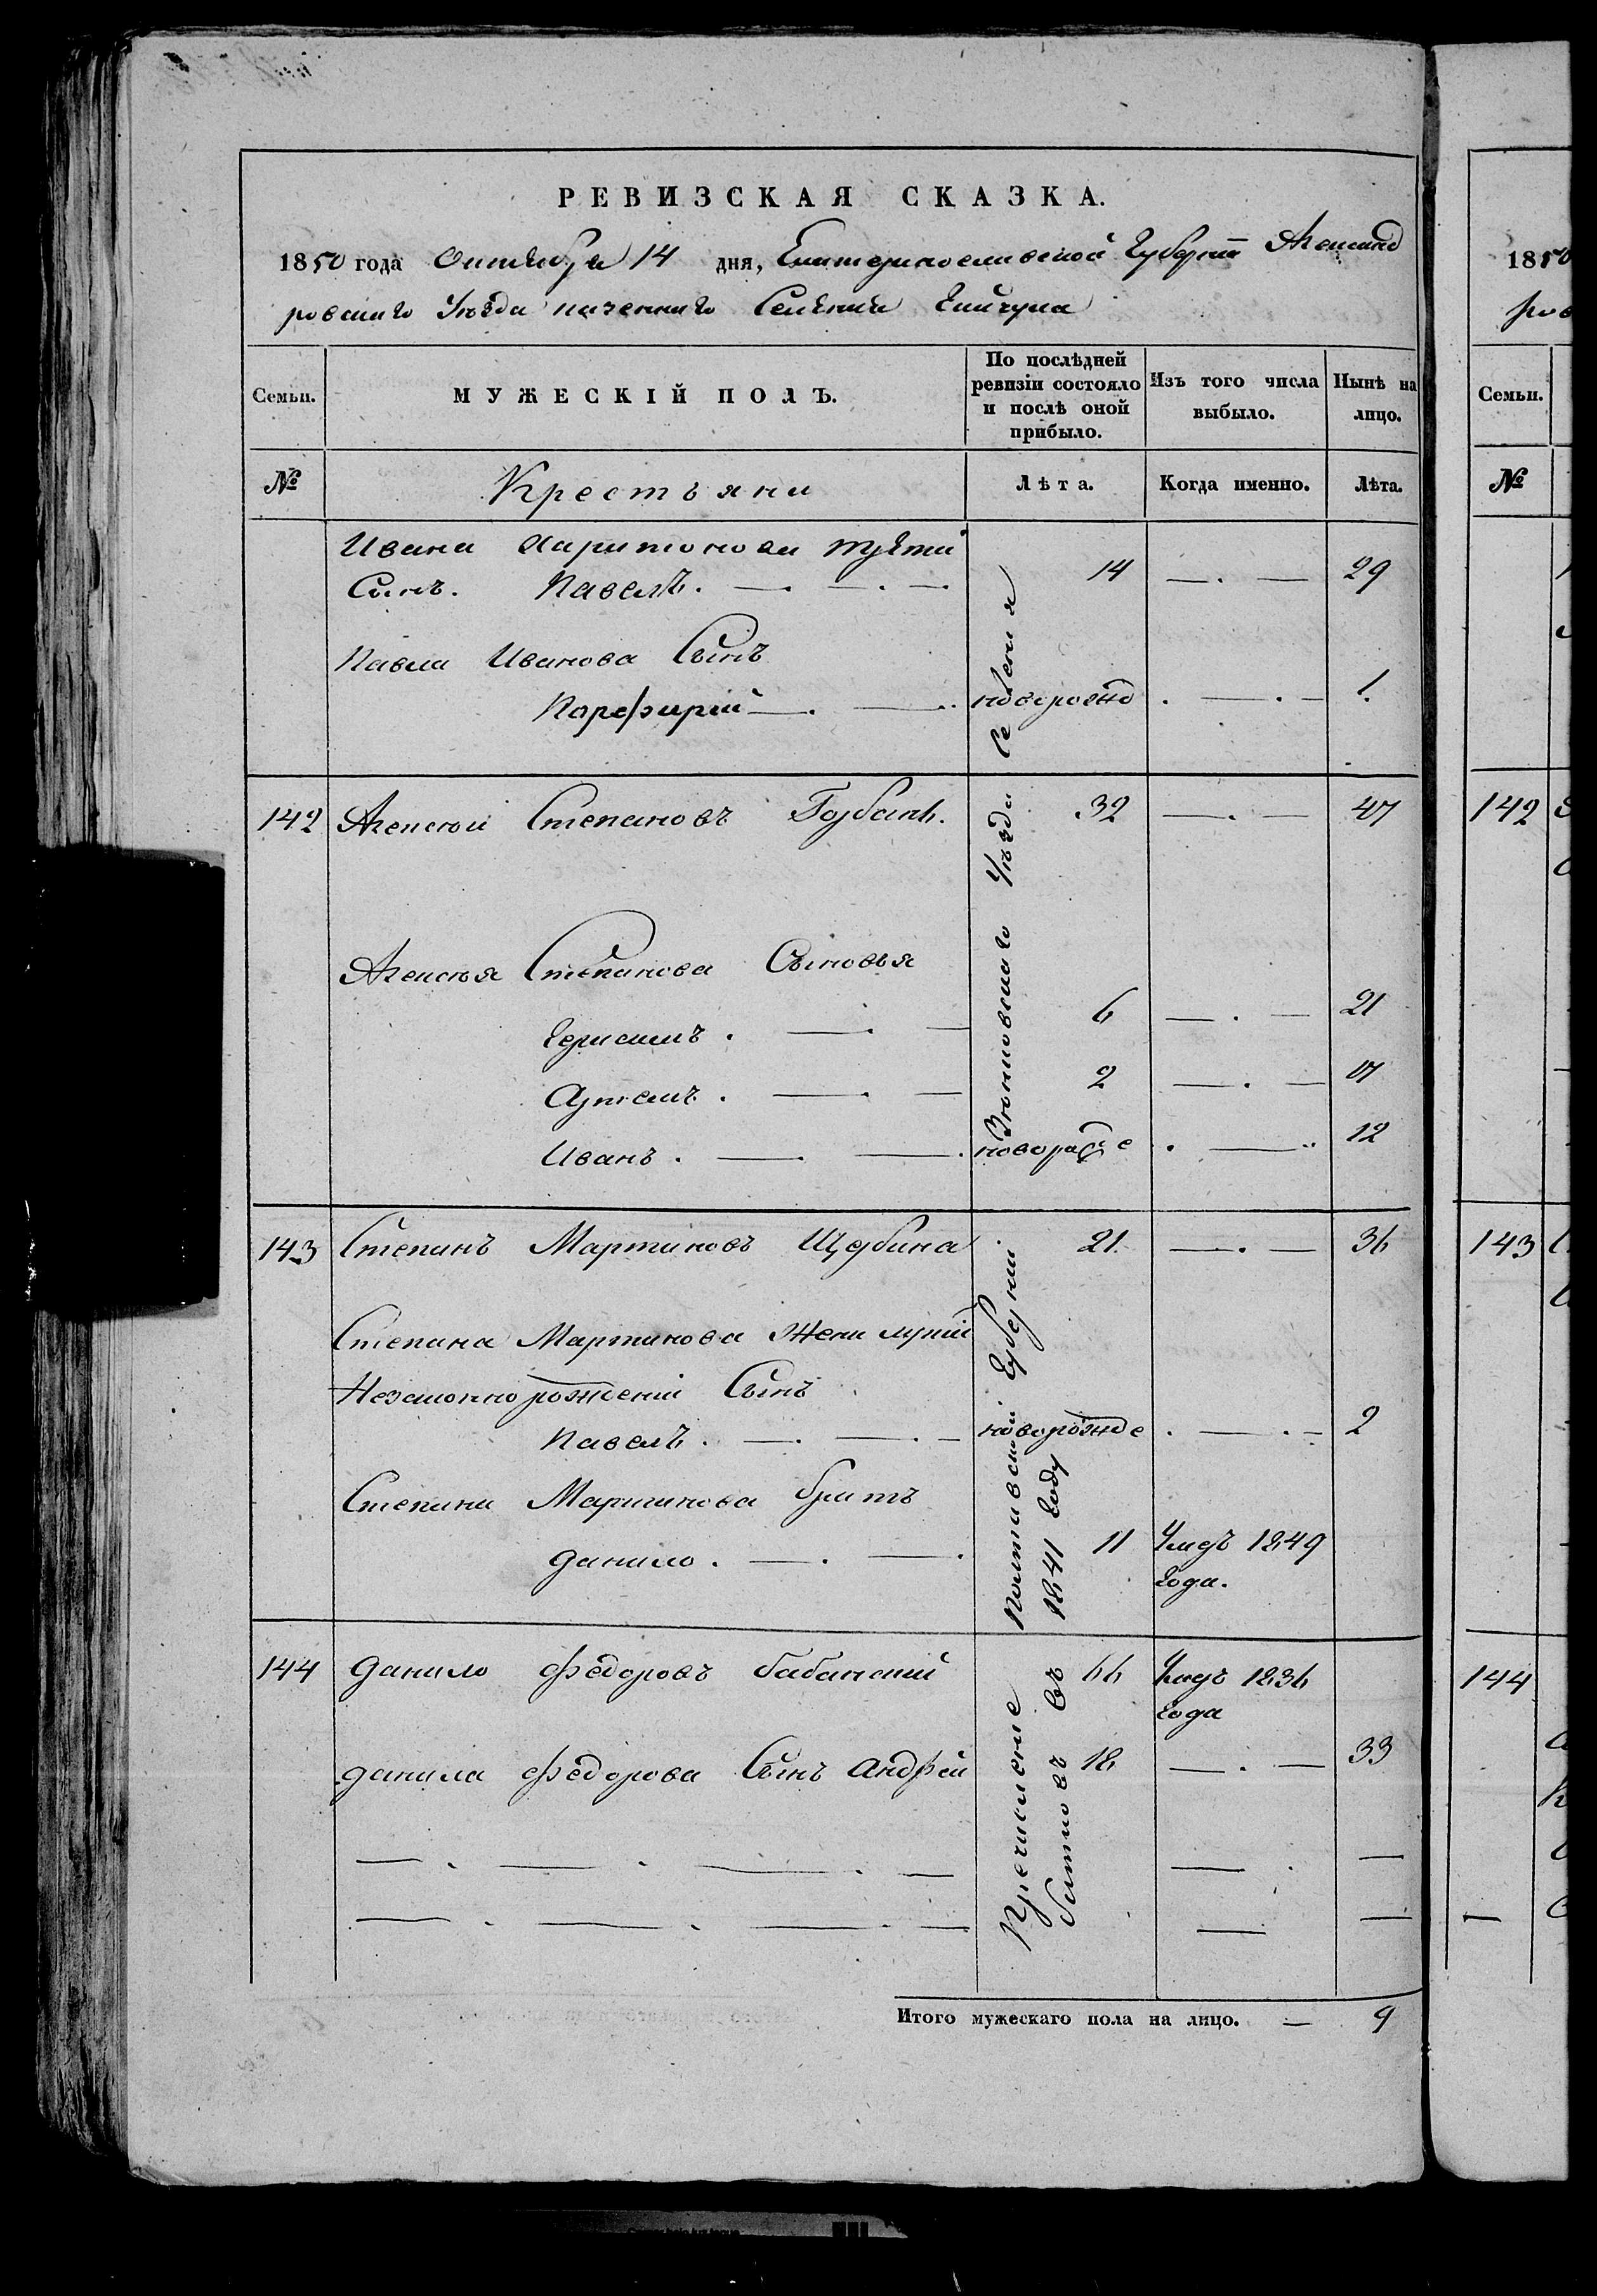 РЕВИЗСКАЯ СКАЗКА.
1850 года Октября 14 дня, Екатеринославской Губернiи Александ
ровскаго Уѣзда казеннаго Селенiя Гайчула
Семьи.
МУЖЕСКIЙ ПОЛЪ.
По послѣдней ревизiи состояло и послѣ оной прибыло.
Изъ того числа выбыло.
Нынѣ на лицо.
№
Крестьяни
Лѣта.
Когда именно.
Лѣта.
Ивана Харитонова третiй
Сынъ. Павелъ. 14 29
Павла Иванова Сынъ
Порфирiй новорожд 1.
142 Алексѣй Степановъ Горбань. 32 47
Алексѣя Степанова Сыновья
Герасимъ. 6 21
Артемъ. 2 17
Иванъ. новорожде 12
143 Степанъ Мартиновъ Щербина 21. 36
Степана Мартинова Жени
Незаконнорожденiй Сынъ
Павелъ. новорожде 2
Степана Мартинова братъ
Данило. 11 Умеръ 1849
года.
144 Данило Федоровъ Бабанский 66 Умеръ 1836
года
Данила Федорова Сынъ Андрѣй 18 33
Причисление Полтавской Губернии Зѣньковскаго Уѣзда Селения
въ 1841 году
Итого мужескаго пола на лицо. — 9
1850
ров
Семьи.
№
142
143
144